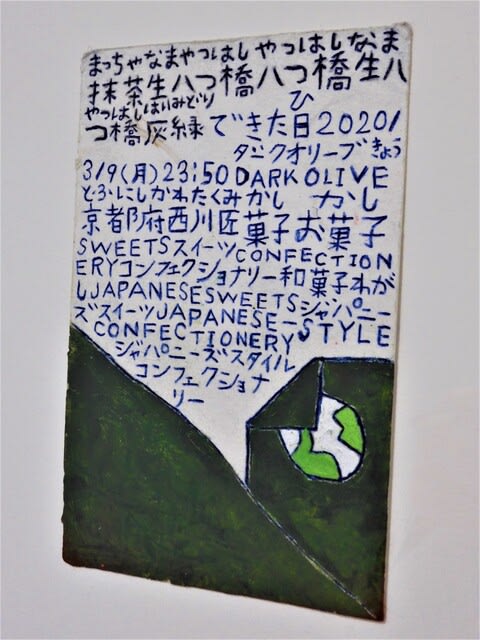 まっちゃなまやつはし やつはしなま
抹茶生八つ橋八つ橋生八
やつはしはいみどり ひ
つ橋灰緑できた日2020/
ダークオリーブ きょう
3/9(月)23:50DARK OLIVE
とふにしかわたくみかし かし
京都府西川匠菓子お菓子
SWEETSスイーツCONFECTION
ERYコンフェクショナリー和菓子わが
しJAPANESESWEETSジャパニー
ズスイーツJAPANESE-STYLE
CONFECTIONERY
ジャパニーズスタイル
コンフェクショナ
リー